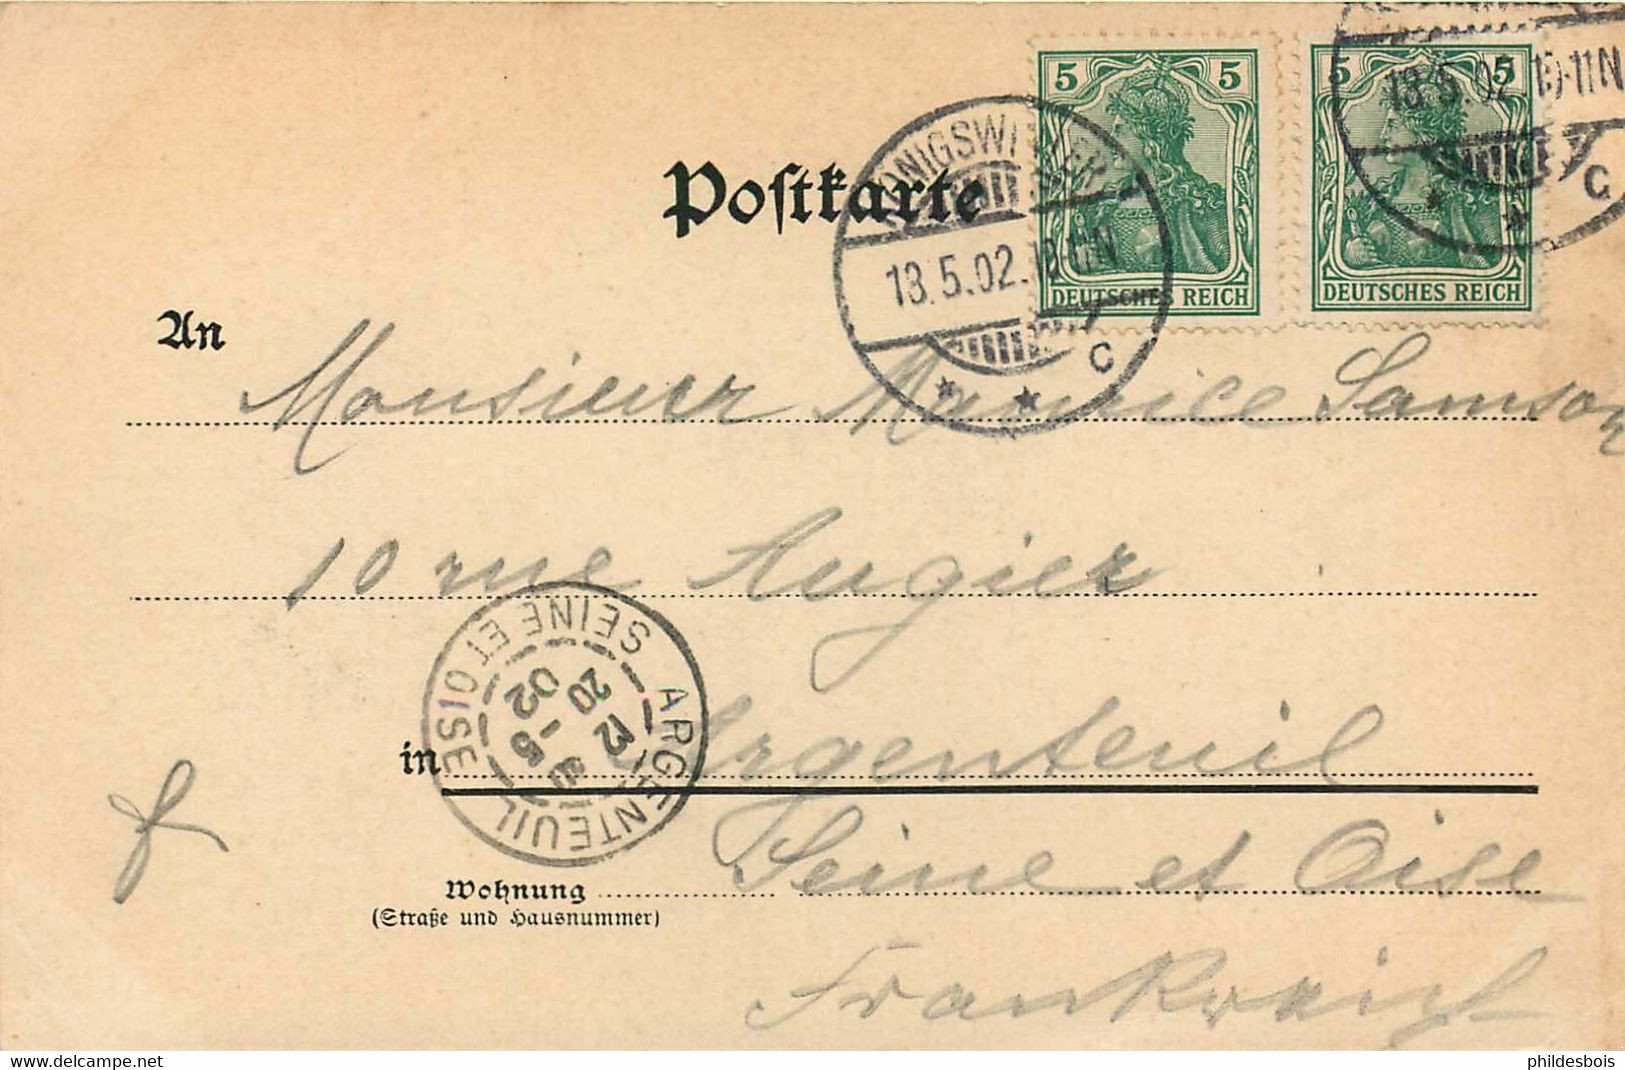 5 5
DEUTSCHES REICH
5 5
DEUTSCHES REICH
KÖNIGSWINTER
13.5.02.10-11N
c
13.5.02.10-11N
c
Postkarte
An Monsieur Maurice Samson
10 rue Augier
in Argenteuil
ARGENTEUIL
SEINE ET OISE
20
13
-5
02
Seine et Oise
Wohnung
(Straße und Hausnummer)
Frankreich
Recto verso
www.delcampe.net
phildesbois